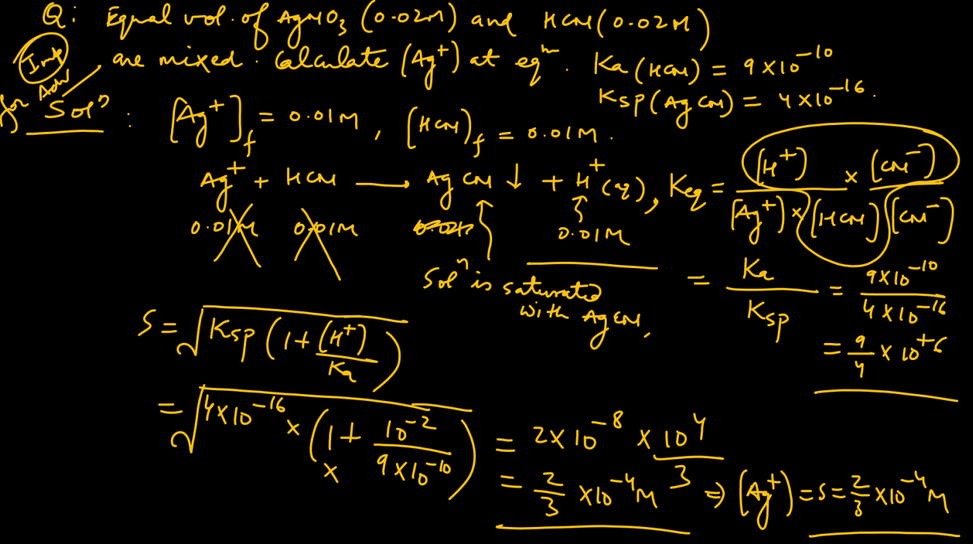 Q: Equal vol. of AgNO3 (0.02M) and HCN (0.02M)
are mixed. Calculate [Ag⁺] at eqᵐ. Ka (HCN) = 9×10⁻¹⁰
Ksp (AgCN) = 4×10⁻¹⁶.
Imp for Adv
Solⁿ : [Ag⁺]f = 0.01M, [HCN]f = 0.01M.
Ag⁺ + HCN → AgCN ↓ + H⁺(aq), Keq = [H⁺] × [CN⁻] / [Ag⁺] × [HCN] [CN⁻]
0.01M 0.01M 0.01M
Solⁿ is saturated with AgCN,
= Ka / Ksp = 9×10⁻¹⁰ / 4×10⁻¹⁶
= 9/4 × 10⁺⁶
S = √Ksp (1 + [H⁺]/Ka)
= √4×10⁻¹⁶ × (1 + 10⁻² / 9×10⁻¹⁰)
= 2×10⁻⁸ × 10⁴/3
= 2/3 ×10⁻⁴M ⇒ [Ag⁺] = S = 2/3 ×10⁻⁴M